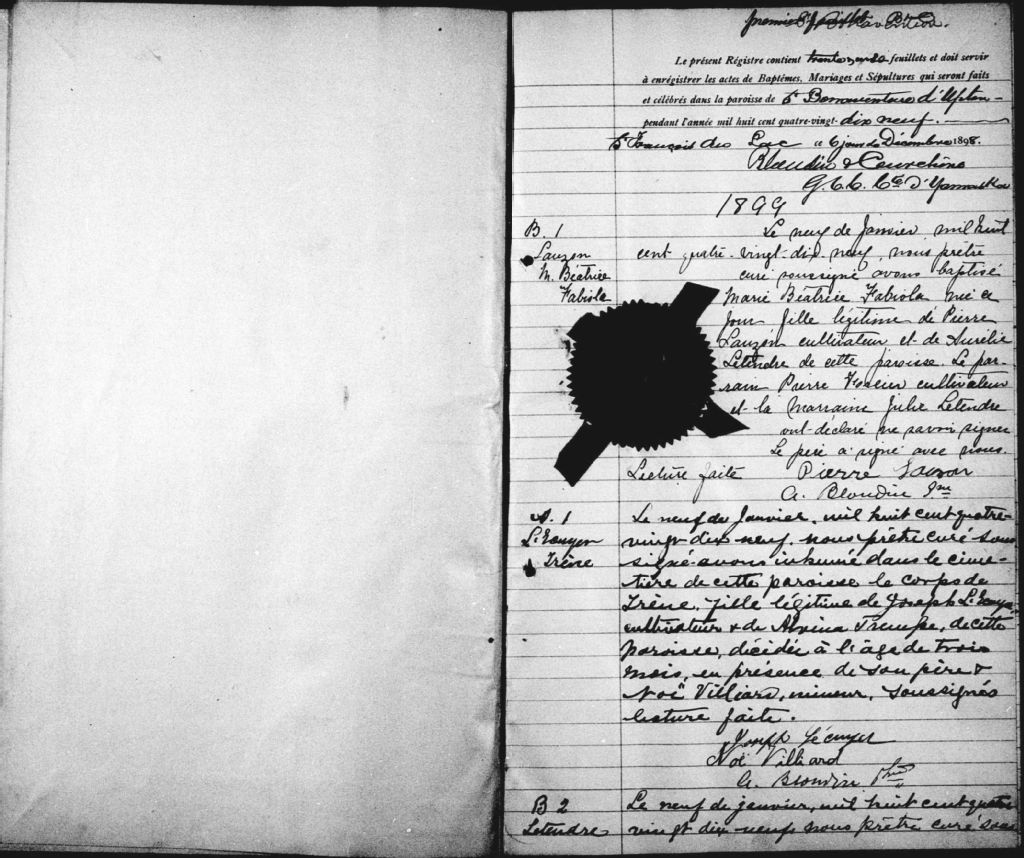 premier feuillet
Le présent Régistre contient trente-neuf feuillets et doit servir
à enrégistrer les actes de Baptêmes, Mariages et Sépultures qui seront faits
et célébrés dans la paroisse de St Bonaventure d'Upton
pendant l'année mil huit cent quatre-vingt-dix neuf.
St François du Lac ce 6 jour de Décembre 1898.
Blondin &
G. C. C. Cté d'Yamaska
1899
B. 1
Lauzon
M. Béatrice
Fabiola
Le neuf de Janvier mil huit
cent quatre-vingt-dix-neuf, nous prêtre
curé soussigné avons baptisé
Marie Béatrice Fabiola née ce
jour fille légitime de Pierre
Lauzon cultivateur et de Aurélie
Letendre de cette paroisse. Le par-
rain Pierre cultivateur
et la Marraine Julie Letendre
ont déclaré ne savoir signer
Le père a signé avec nous.
Lecture faite Pierre Lauzon
A. Blondin Ptre
S. 1
L'Ecuyer
Irène
Le neuf de Janvier, mil huit cent quatre-
vingt dix neuf, nous prêtre curé sous
signé avons inhumé dans le cime-
tière de cette paroisse le corps de
Irène, fille légitime de Joseph L'Ecuyer
cultivateur & de Alvina Trempe, de cette
paroisse, décédée à l'âge de trois
mois, en présence de son père &
Noé Villiard, mineur, soussignés
lecture faite.
Joseph Lécuyer
Noé Villiard
A. Blondin Ptre
B 2
Letendre
Le neuf de janvier, mil huit cent quatre
vingt dix neuf nous prêtre curé sous